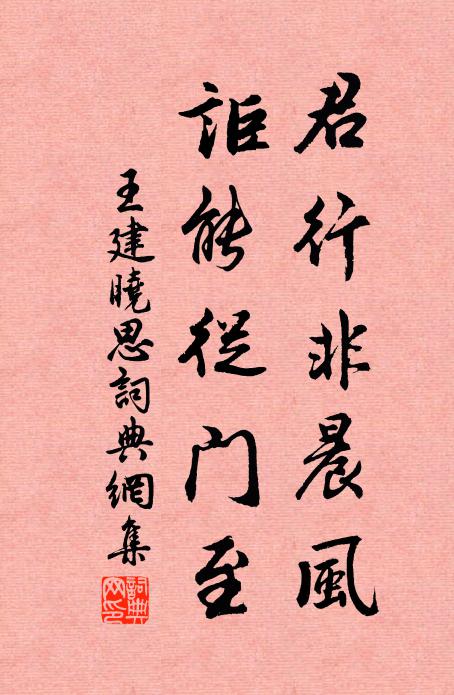 君行非晨風
詎能從门至
王建曉思詞典網集
詞典網印